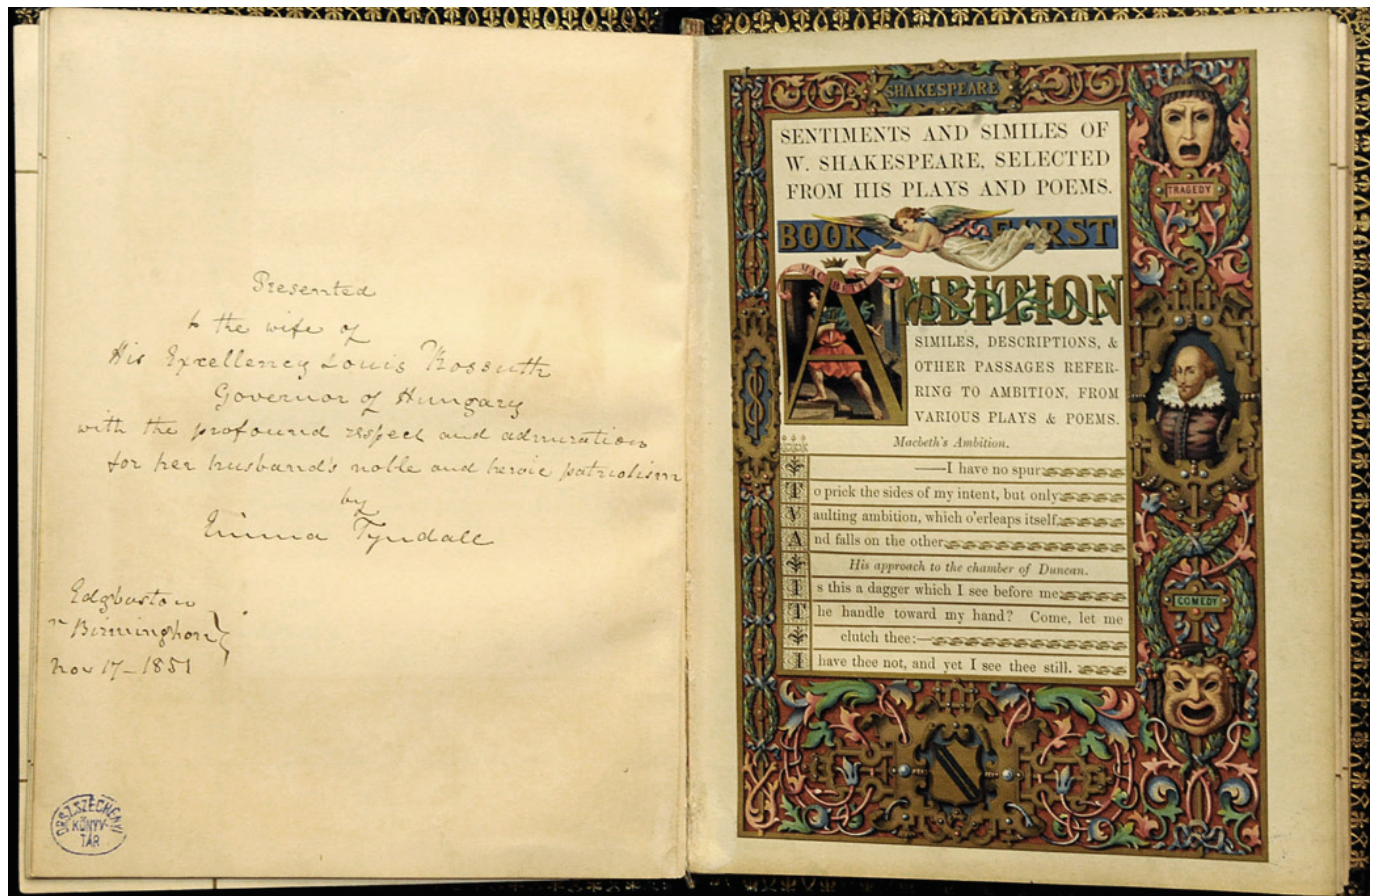 Presented
to the wife of
His Excellency Louis Kossuth
Governor of Hungary
with the profound respect and admiration
for her husband's noble and heroic patriotism
by
Emma Tyndale
Edgbaston
nr Birmingham
Nov 17 - 1851
ORSZ. SZÉCHÉNYI
KÖNYV-
TÁR
SHAKESPEARE
SENTIMENTS AND SIMILES OF
W. SHAKESPEARE, SELECTED
FROM HIS PLAYS AND POEMS.
BOOK FIRST
MACBETH
AMBITION
SIMILES, DESCRIPTIONS, &
OTHER PASSAGES REFER-
RING TO AMBITION, FROM
VARIOUS PLAYS & POEMS.
Macbeth's Ambition.
—I have no spur
To prick the sides of my intent, but only
Vaulting ambition, which o'erleaps itself,
And falls on the other
His approach to the chamber of Duncan.
Is this a dagger which I see before me
The handle toward my hand? Come, let me
clutch thee:—
I have thee not, and yet I see thee still.
TRAGEDY
COMEDY